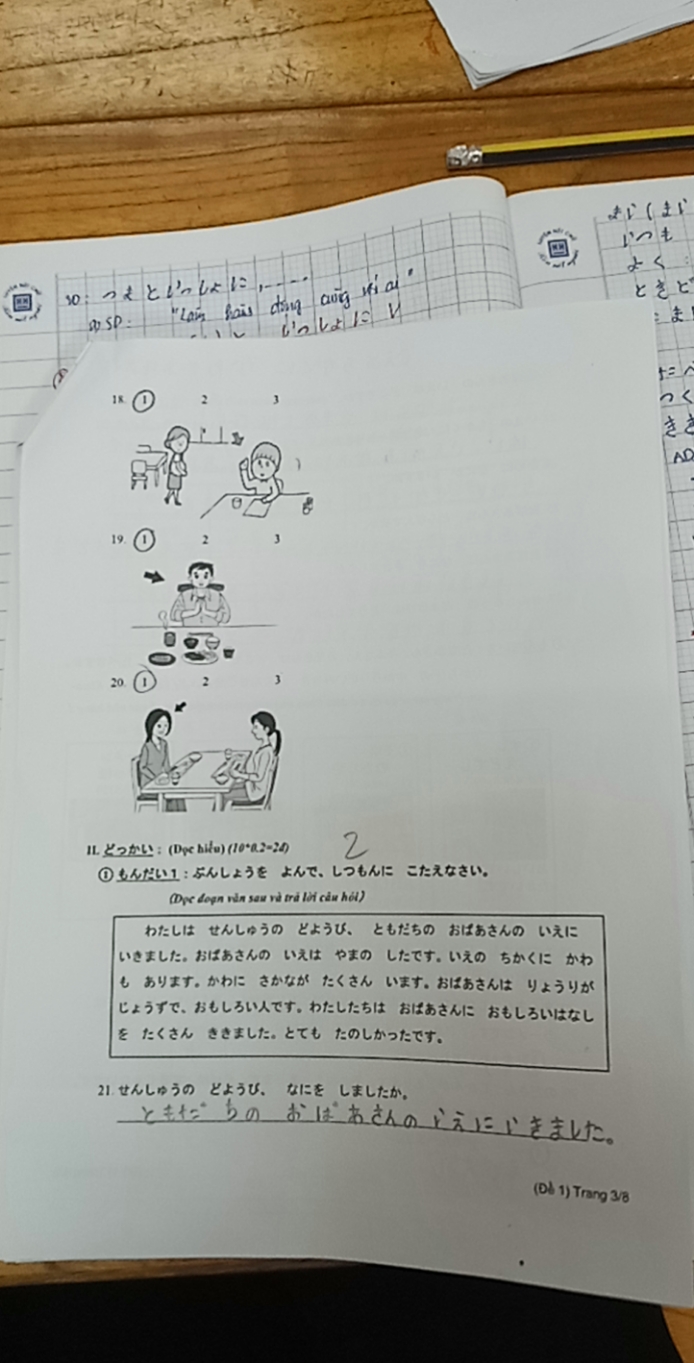 SD: つまといっしょに, .....
"Làm hành động cùng với ai"
いっしょに V
まい (まい
いつも
よく :
ときど
18. 1 2 3
19. 1 2 3
20. 1 2 3
II. どっかい : (Đọc hiểu) (10*0.2=2đ)
2
① もんだい1 : ぶんしょうを よんで、しつもんに こたえなさい。
(Đọc đoạn văn sau và trả lời câu hỏi)
わたしは せんしゅうの どようび、 ともだちの おばあさんの いえに
いきました。おばあさんの いえは やまの したです。いえの ちかくに かわ
も あります。かわに さかなが たくさん います。おばあさんは りょうりが
じょうずで、おもしろい人です。わたしたちは おばあさんに おもしろいはなし
を たくさん ききました。とても たのしかったです。
21. せんしゅうの どようび、 なにを しましたか。
ともだちの おばあさんのいえにいきました。
(Đề 1) Trang 3/8